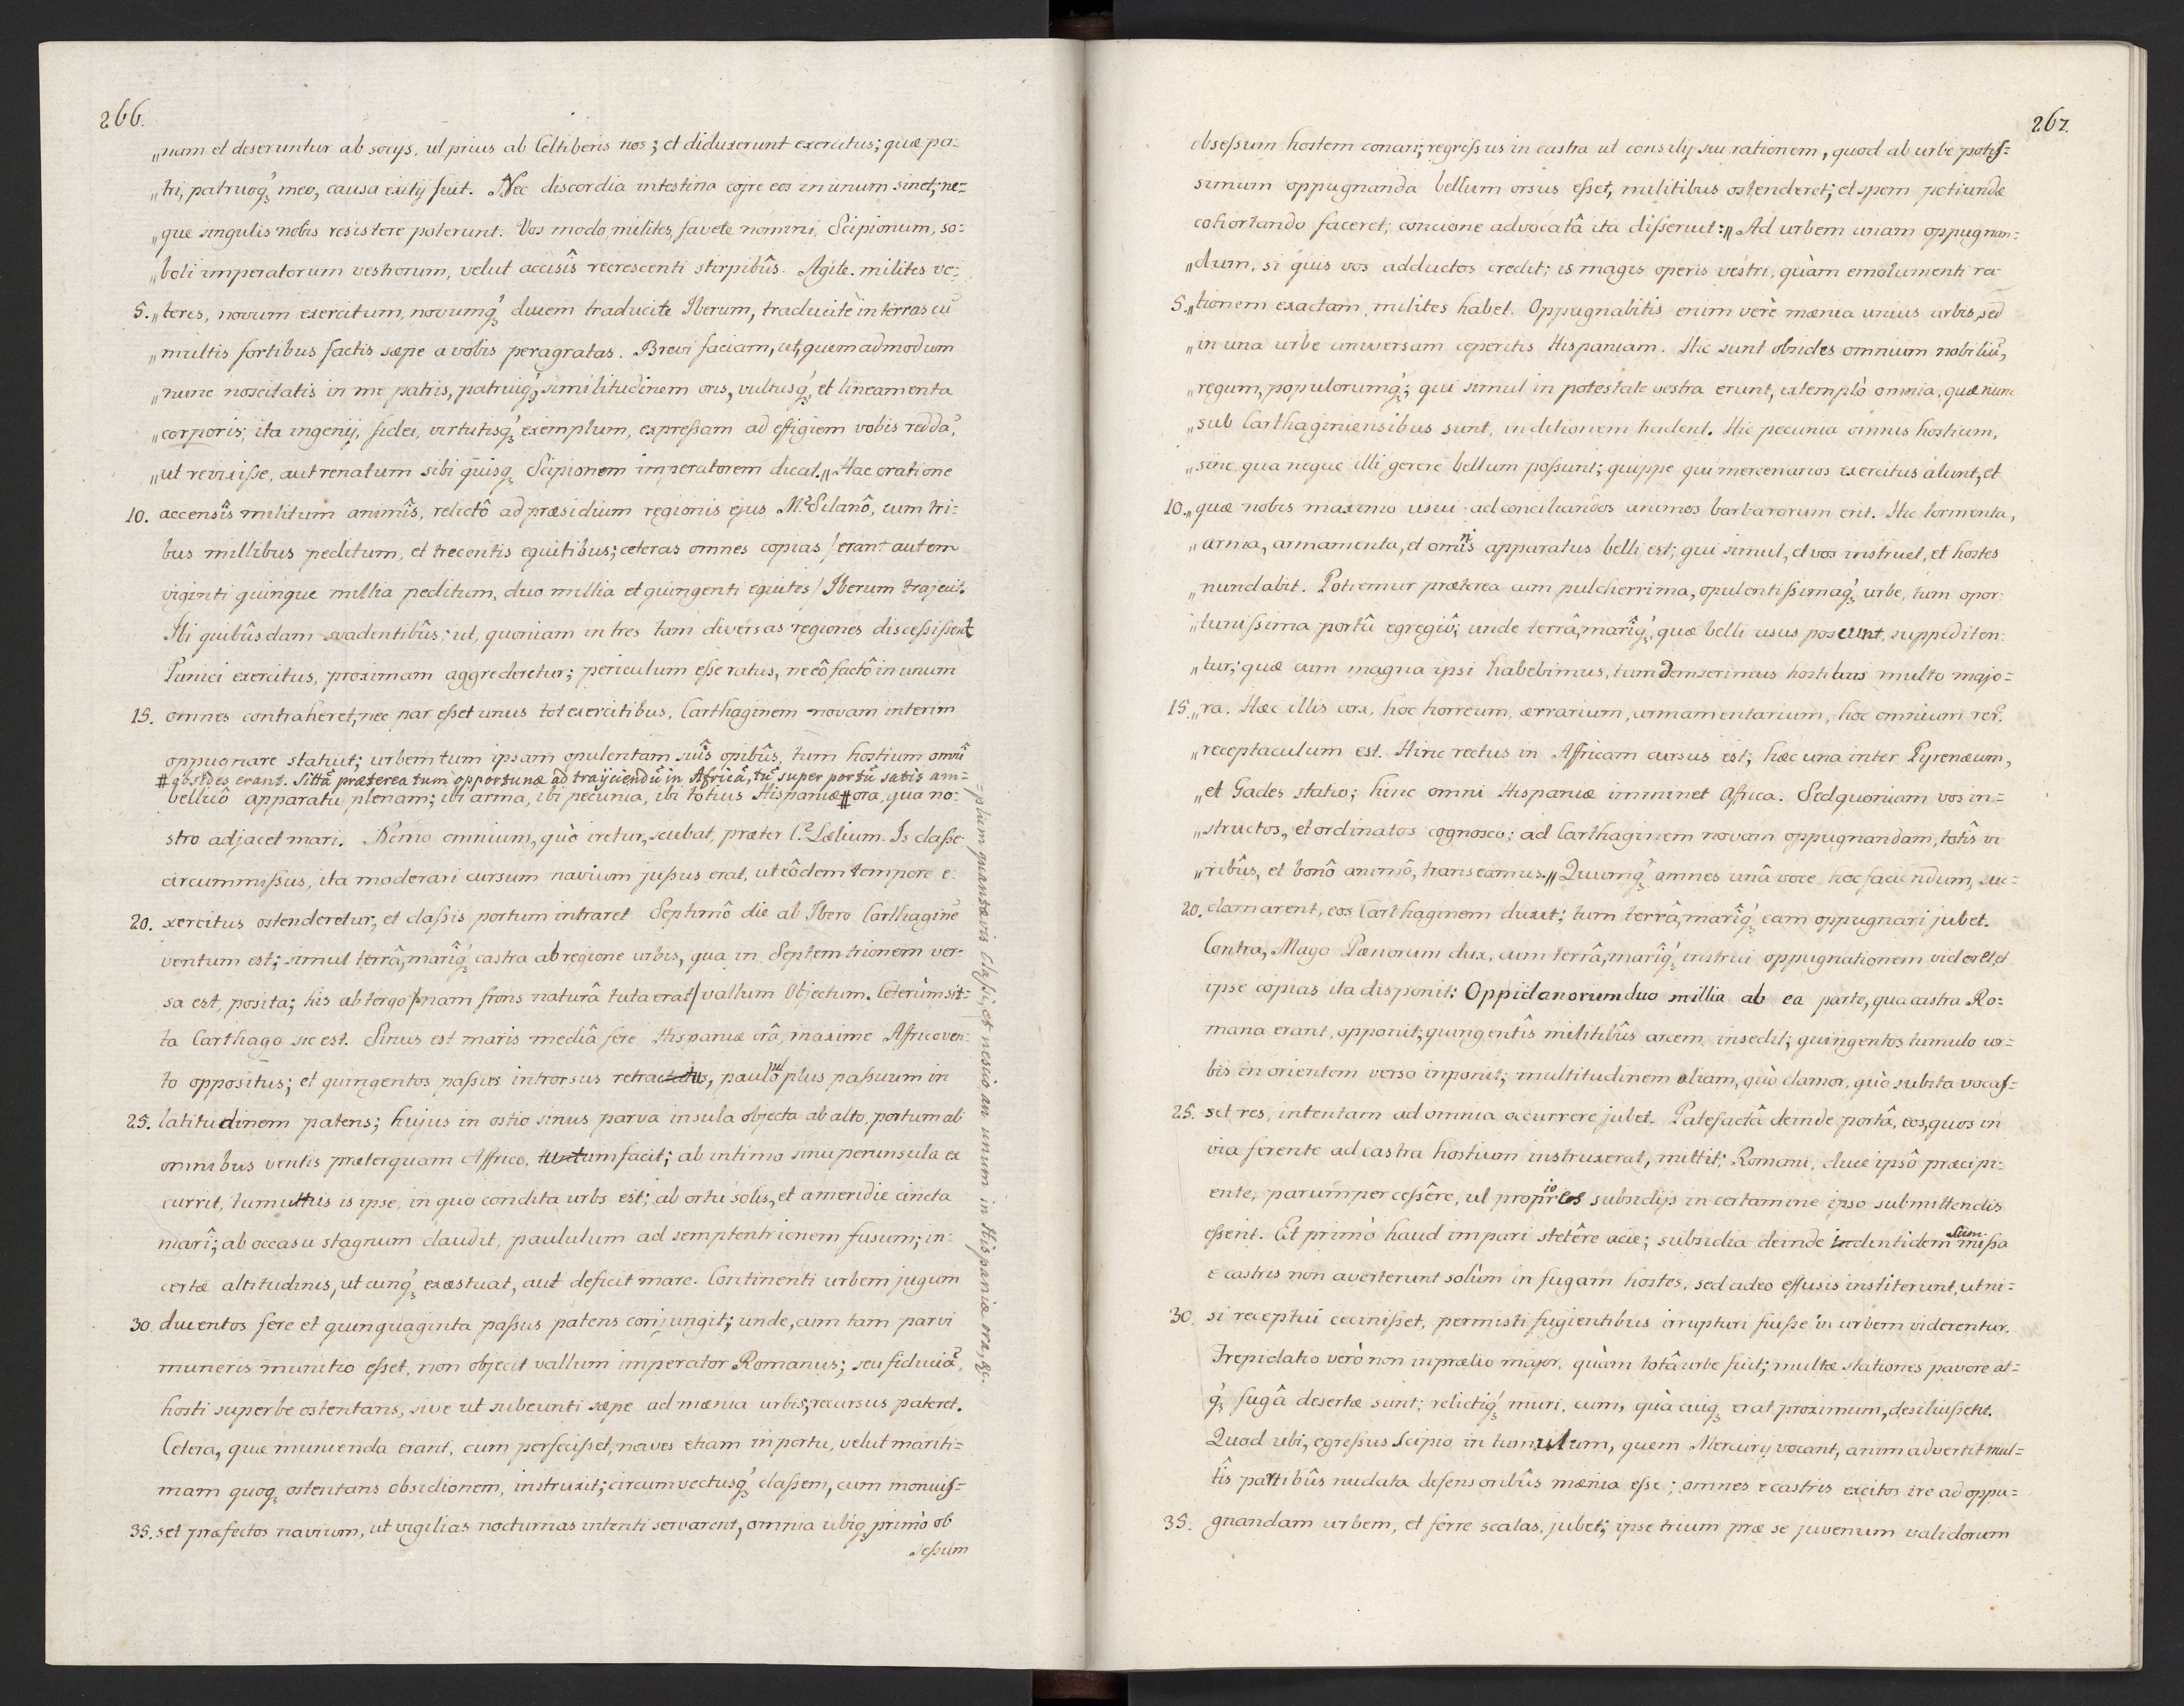 266.
„nam et deseruntur ab socijs, ut prius ab Celtiberis nos; et diduxerunt exercitus; quæ pa=
„tri, patruoq́ꝫ meo, causa exitij fuit. Nec discordia intestina coire eos in unum sinet; ne=
„que singulis nobis resistere poterunt. Vos modo, milites, favete nomini, Scipionum, so=
„boli imperatorum vestrorum, velut accisîs recrescenti stirpibûs. Agite. milites ve=
5. „teres, novum exercitum, novumq́ꝫ ducem traducite Iberum, traducite in terras cũ
„multis fortibus factis sæpe a vobis peragratas. Brevi faciam, ut, quemadmodum
„nunc noscitatis in me patris, patruiq́ꝫ similitudinem oris, vultusq́ꝫ, et lineamenta
„corporis; ita ingenij, fidei, virtutisq́ꝫ exemplum, expressam ad effigiem vobis reddã,
„ut revixisse, aut renatum sibi quisqꝫ Scipionem imperatorem dicat.„ Hac oratione
10. accensîs militum animîs, relictô ad præsidium regionis ejus M.º Silanô, cum tri=
bus millibus peditum, et trecentis equitibus; ceteras omnes copias / erant autem
viginti quinque millia peditum, duo millia et quingenti equites / Iberum trajecit.
Ibi quibûsdam svadentibûs; ut, quoniam in tres tam diversas regiones discessissent
Punici exercitus, proximam aggrederetur; periculum esse ratus, ne eô factô in unum
15. omnes contraheret, nec par esset unus tot exercitibus, Carthaginem novam interim
oppugnare statuit; urbem tum ipsam opulentam suîs opibûs, tum hostium omnî
# obsides erant. Sittâ præterea tum opportunæ ad traijciendũ in Africã, tũ super portũ satis am=
bellicô apparatu plenam; ibi arma, ibi pecunia, ibi totius Hispaniæ # ora, qua no=
=plum quantævis classi, et nescio an unum in Hispaniæ ora, &c.
stro adjacet mari. Nemo omnium, quò iretur, sciebat, præter C.º Lælium. Is classe
circummissus, ita moderari cursum navium jussus erat, ut eôdem tempore e=
20. xercitus ostenderetur, et classis portum intraret. Septimô die ab Ibero Carthaginẽ
ventum est; simul terrâ, marîq́ꝫ castra ab regione urbis, qua in Septemtrionem ver=
sa est, posita; his ab tergo / nam frons naturâ tuta erat / vallum objectum. Ceterùm sit=
ta Carthago sic est. Sinus est maris mediâ fere Hispaniæ orâ, maxime Affrico ven=
to oppositus; et quingentos passus introrsus retractatus, paulô plus passuum in
25. latitudinem patens; hujus in ostio sinus parva insula objecta ab alto, portum ab
omnibus ventis præterquam Affrico, tutum facit; ab intimo sinu perunsula ex
currit, tumultus is ipse, in quo condita urbs est; ab ortu solis, et a meridie cincta
marî; ab occasu stagnum claudit, paululum ad semptentrionem fusum; in=
certæ altitudinis, utcunq́ꝫ exæstuat, aut deficit mare. Continenti urbem jugum
30. ducentos fere et quinquaginta passus patens conjungit; unde, cum tam parvi
muneris munitio esset, non objecit vallum imperator Romanus; seu fiduciã,
hosti superbe ostentans, sive ut subeunti sæpe ad mænia urbis, recursus pateret.
Cetera, quæ munienda erant, cum perfecisset, naves etiam in portu, velut mariti=
mam quoqꝫ ostentans obsidionem, instruxit; circumvectusq́ꝫ classem, cum monuis=
35. set præfectos navium, ut vigilias nocturnas intenti servarent, omnia ubiqꝫ primò ob
sessum
267.
obsessum hostem conari; regressus in castra ut consilij sui rationem, quod ab urbe potis=
simum oppugnanda bellum orsus esset, militibus ostenderet; et spem potiundæ
cohortando faceret; concione advocatâ ita disseruit: „Ad urbem unam oppugnan=
„dum, si quis vos adductos credit; is magis operis vestri, quàm emolumenti ra
5. „tionem exactam, milites habet. Oppugnabitis enim verè mænia unius urbis, sed
„in una urbe universam ceperitis Hispaniam. Hic sunt obsides omnium nobiliũ,
„regum, populorumq́ꝫ; qui simul in potestate vestra erunt, extemplò omnia, quæ nunc
„sub Carthaginiensibus sunt, in ditionem tradent. Hic pecunia omnis hostium,
„sine qua neque illi gerere bellum possunt; quippe qui mercenarios exercitus alunt, et
10. „quæ nobis maximo usui ad conciliandos animos barbarorum erit. Hic tormenta,
„arma, armamenta, et omnis apparatus belli est; qui simul, et vos instruet, et hostes
„nundabit. Potiemur præterea cum pulcherrima, opulentissimaq́ꝫ urbe, tum opor=
„tunissima portû egregiô; unde terrâ, marîq́ꝫ, quæ belli usus poscunt, suppediten=
„tur; quæ cum magna ipsi habebimus, tum demserimus hostibus multo majo=
15. „ra. Hæc illis arx, hoc horreum, ærrarium, armamentarium, hoc omnium rerũ
„receptaculum est. Hinc rectus in Affricam cursus est; hæc una inter Pyrenæum,
„et Gades statio; hinc omni Hispaniæ imminet Africa. Sed quoniam vos in=
„structos, et ordinatos cognosco; ad Carthaginem novam oppugnandam, totîs vi
„ribûs, et bonô animô, transeamus.„ Quumq́ꝫ omnes unâ voce hoc faciendum, suc=
20. clamarent, eos Carthaginem duxit; tum terrâ, marîq́ꝫ eam oppugnari jubet.
Contra, Mago Pænorum dux, cum terrâ, marîq́ꝫ instrui oppugnationem videret, et
ipse copias ita disponit: Oppidanorum duo millia ab ea parte, qua castra Ro=
mana erant, opponit; quingentîs militibûs arcem insedit; quingentos tumulo ur=
bis in orientem verso inponit; multitudinem aliam, quò clamor, quò subita vocas=
25. set res, intentam ad omnia occurrere jubet. Patefactâ deinde portâ, eos, quos in
via ferente ad castra hostium instruxerat, mittit; Romani, duce ipsô præcipi=
ente, parumper cessêre, ut propriores subsidijs in certamine ipso submittendis
essent. Et primò haud impari stetêre acie; subsidia deinde identidem summissa
e castris non averterunt solùm in fugam hostes, sed adeo effusis institerunt, ut ni=
30. si receptui cecinisset, permisti fugientibus irrupturi fuisse in urbem viderentur.
Trepidatio verò non in prælio major, quàm totâ urbe fuit; multæ stationes pavore at=
q́ꝫ fugâ desertæ sunt; relictiq́ꝫ muri, cum, quà cuiqꝫ erat proximum, desiliissent.
Quod ubi, egressus Scipio in tumulum, quem Mercurij vocant, animadvertit mul=
tîs partibûs nudata defensoribûs mænia esse; omnes e castris excitos ire ad oppu=
35. gnandam urbem, et ferre scalas, jubet; ipse trium præ se juvenum validorum